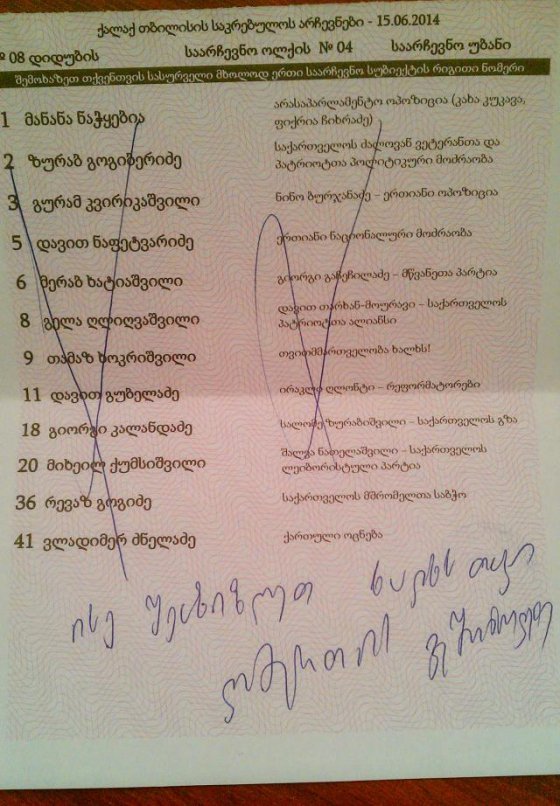 ქალაქ თბილისის საკრებულოს არჩევნები - 15.06.2014
№ 08 დიდუბის საარჩევნო ოლქის № 04 საარჩევნო უბანი
შემოხაზეთ თქვენთვის სასურველი მხოლოდ ერთი საარჩევნო სუბიექტის რიგითი ნომერი
1 მანანა ნაჭყებია არასაპარლამენტო ოპოზიცია (კახა კუკავა, ფიქრია ჩიხრაძე)
2 ზურაბ გოგიბერიძე საქართველოს ძალოვან ვეტერანთა და პატრიოტთა პოლიტიკური მოძრაობა
3 გურამ კვირიკაშვილი ნინო ბურჯანაძე - ერთიანი ოპოზიცია
5 დავით ნაფეტვარიძე ერთიანი ნაციონალური მოძრაობა
6 მერაბ ხატიაშვილი გიორგი გაჩეჩილაძე - მწვანეთა პარტია
8 გელა ღლიღვაშვილი დავით თარხან-მოურავი - საქართველოს პატრიოტთა ალიანსი
9 თამაზ ხოკრიშვილი თვითმმართველობა ხალხს!
11 დავით გუბელაძე ირაკლი ღლონტი - რეფორმატორები
18 გიორგი კალანდაძე სალომე ზურაბიშვილი - საქართველოს გზა
20 მიხეილ ქუმსიშვილი შალვა ნათელაშვილი - საქართველოს ლეიბორისტული პარტია
36 რევაზ გოგიძე საქართველოს მშრომელთა საბჭო
41 ვლადიმერ ძნელაძე ქართული ოცნება
ისე შეასიზღეთ ხალხს თავი
ღმერთმა